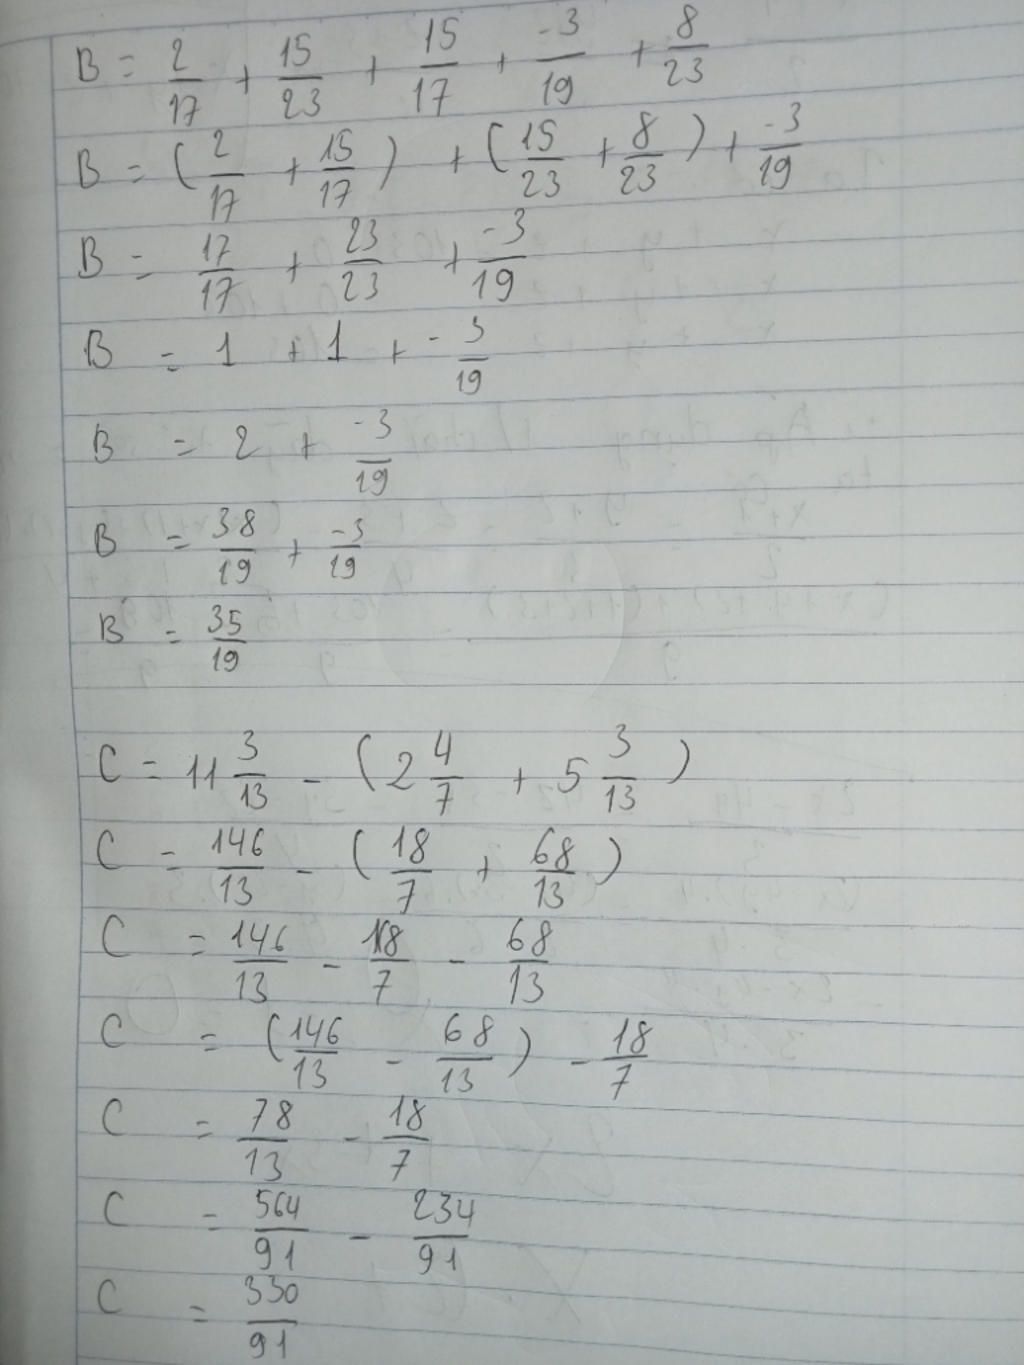 B = 2/17 + 15/23 + 15/17 + -3/19 + 8/23
B = (2/17 + 15/17) + (15/23 + 8/23) + -3/19
B = 17/17 + 23/23 + -3/19
B = 1 + 1 + -3/19
B = 2 + -3/19
B = 38/19 + -3/19
B = 35/19
C = 11 3/13 - (2 4/7 + 5 3/13)
C = 146/13 - (18/7 + 68/13)
C = 146/13 - 18/7 - 68/13
C = (146/13 - 68/13) - 18/7
C = 78/13 - 18/7
C = 564/91 - 234/91
C = 330/91